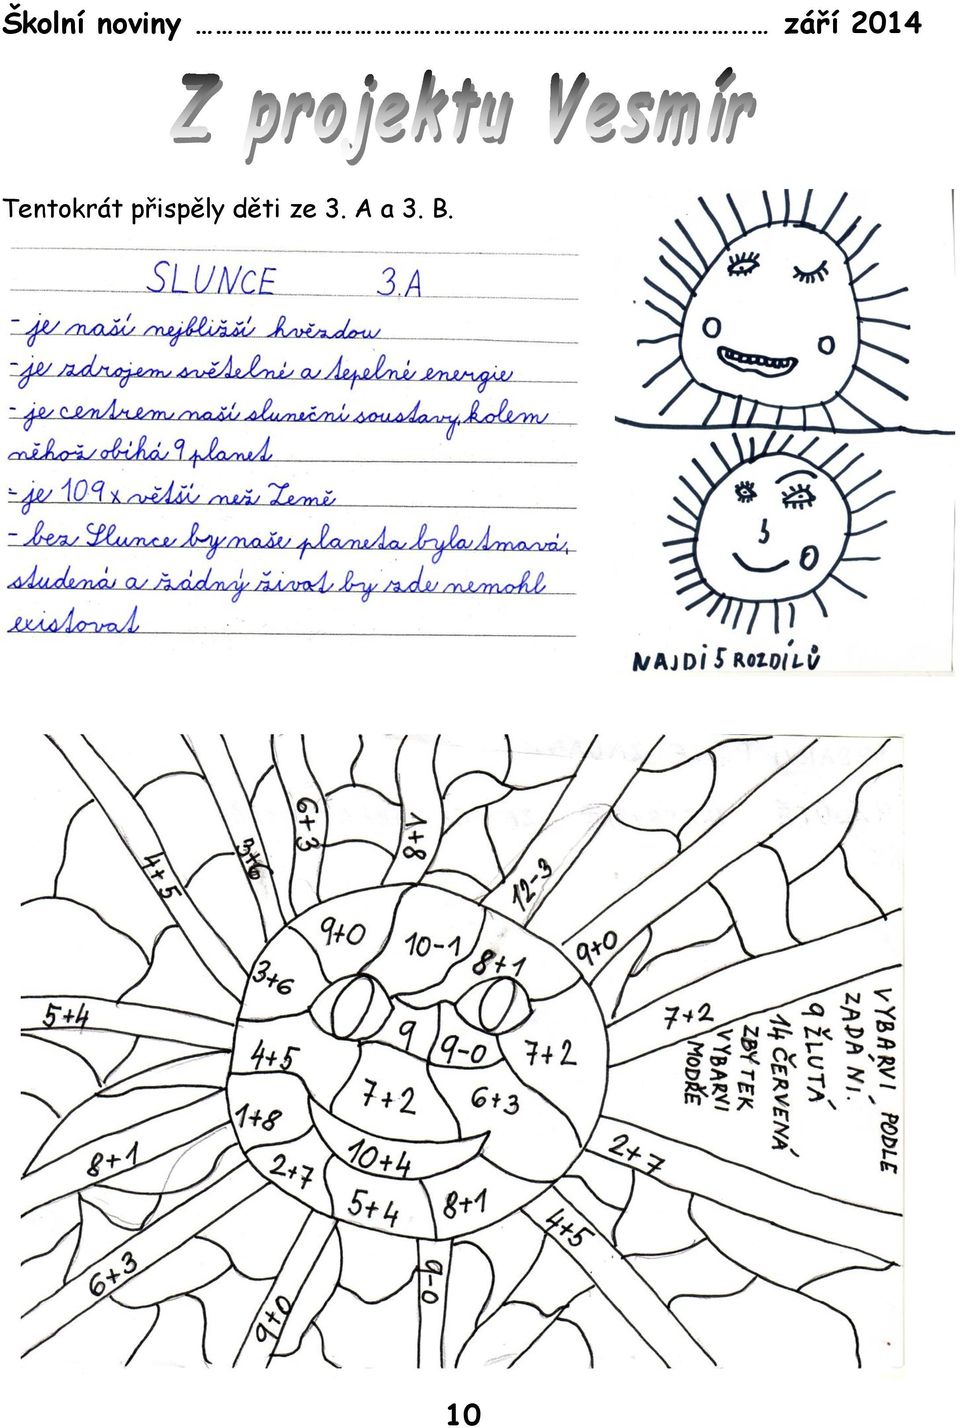 Školní noviny ……………………………………………………………………… září 2014
Z projektu Vesmír
Tentokrát přispěly děti ze 3. A a 3. B.
SLUNCE 3.A
- je naší nejbližší hvězdou
- je zdrojem světelné a tepelné energie
- je centrem naší sluneční soustavy, kolem
něhož obíhá 9 planet
- je 109x větší než Země
- bez Slunce by naše planeta byla tmavá,
studená a žádný život by zde nemohl
existovat
NAJDI 5 ROZDÍLŮ
4+5
3+6
6+3
1+8
12-3
9+0
9+0
10-1
8+1
3+6
5+4
4+5
9
9-0
7+2
7+2
7+2
6+3
1+8
10+4
2+7
5+4
8+1
8+1
2+7
4+5
6+3
9+0
9-0
VYBARVI PODLE
ZADÁNÍ.
9 ŽLUTÁ
14 ČERVENÁ
ZBYTEK
VYBARVI
MODŘE
10